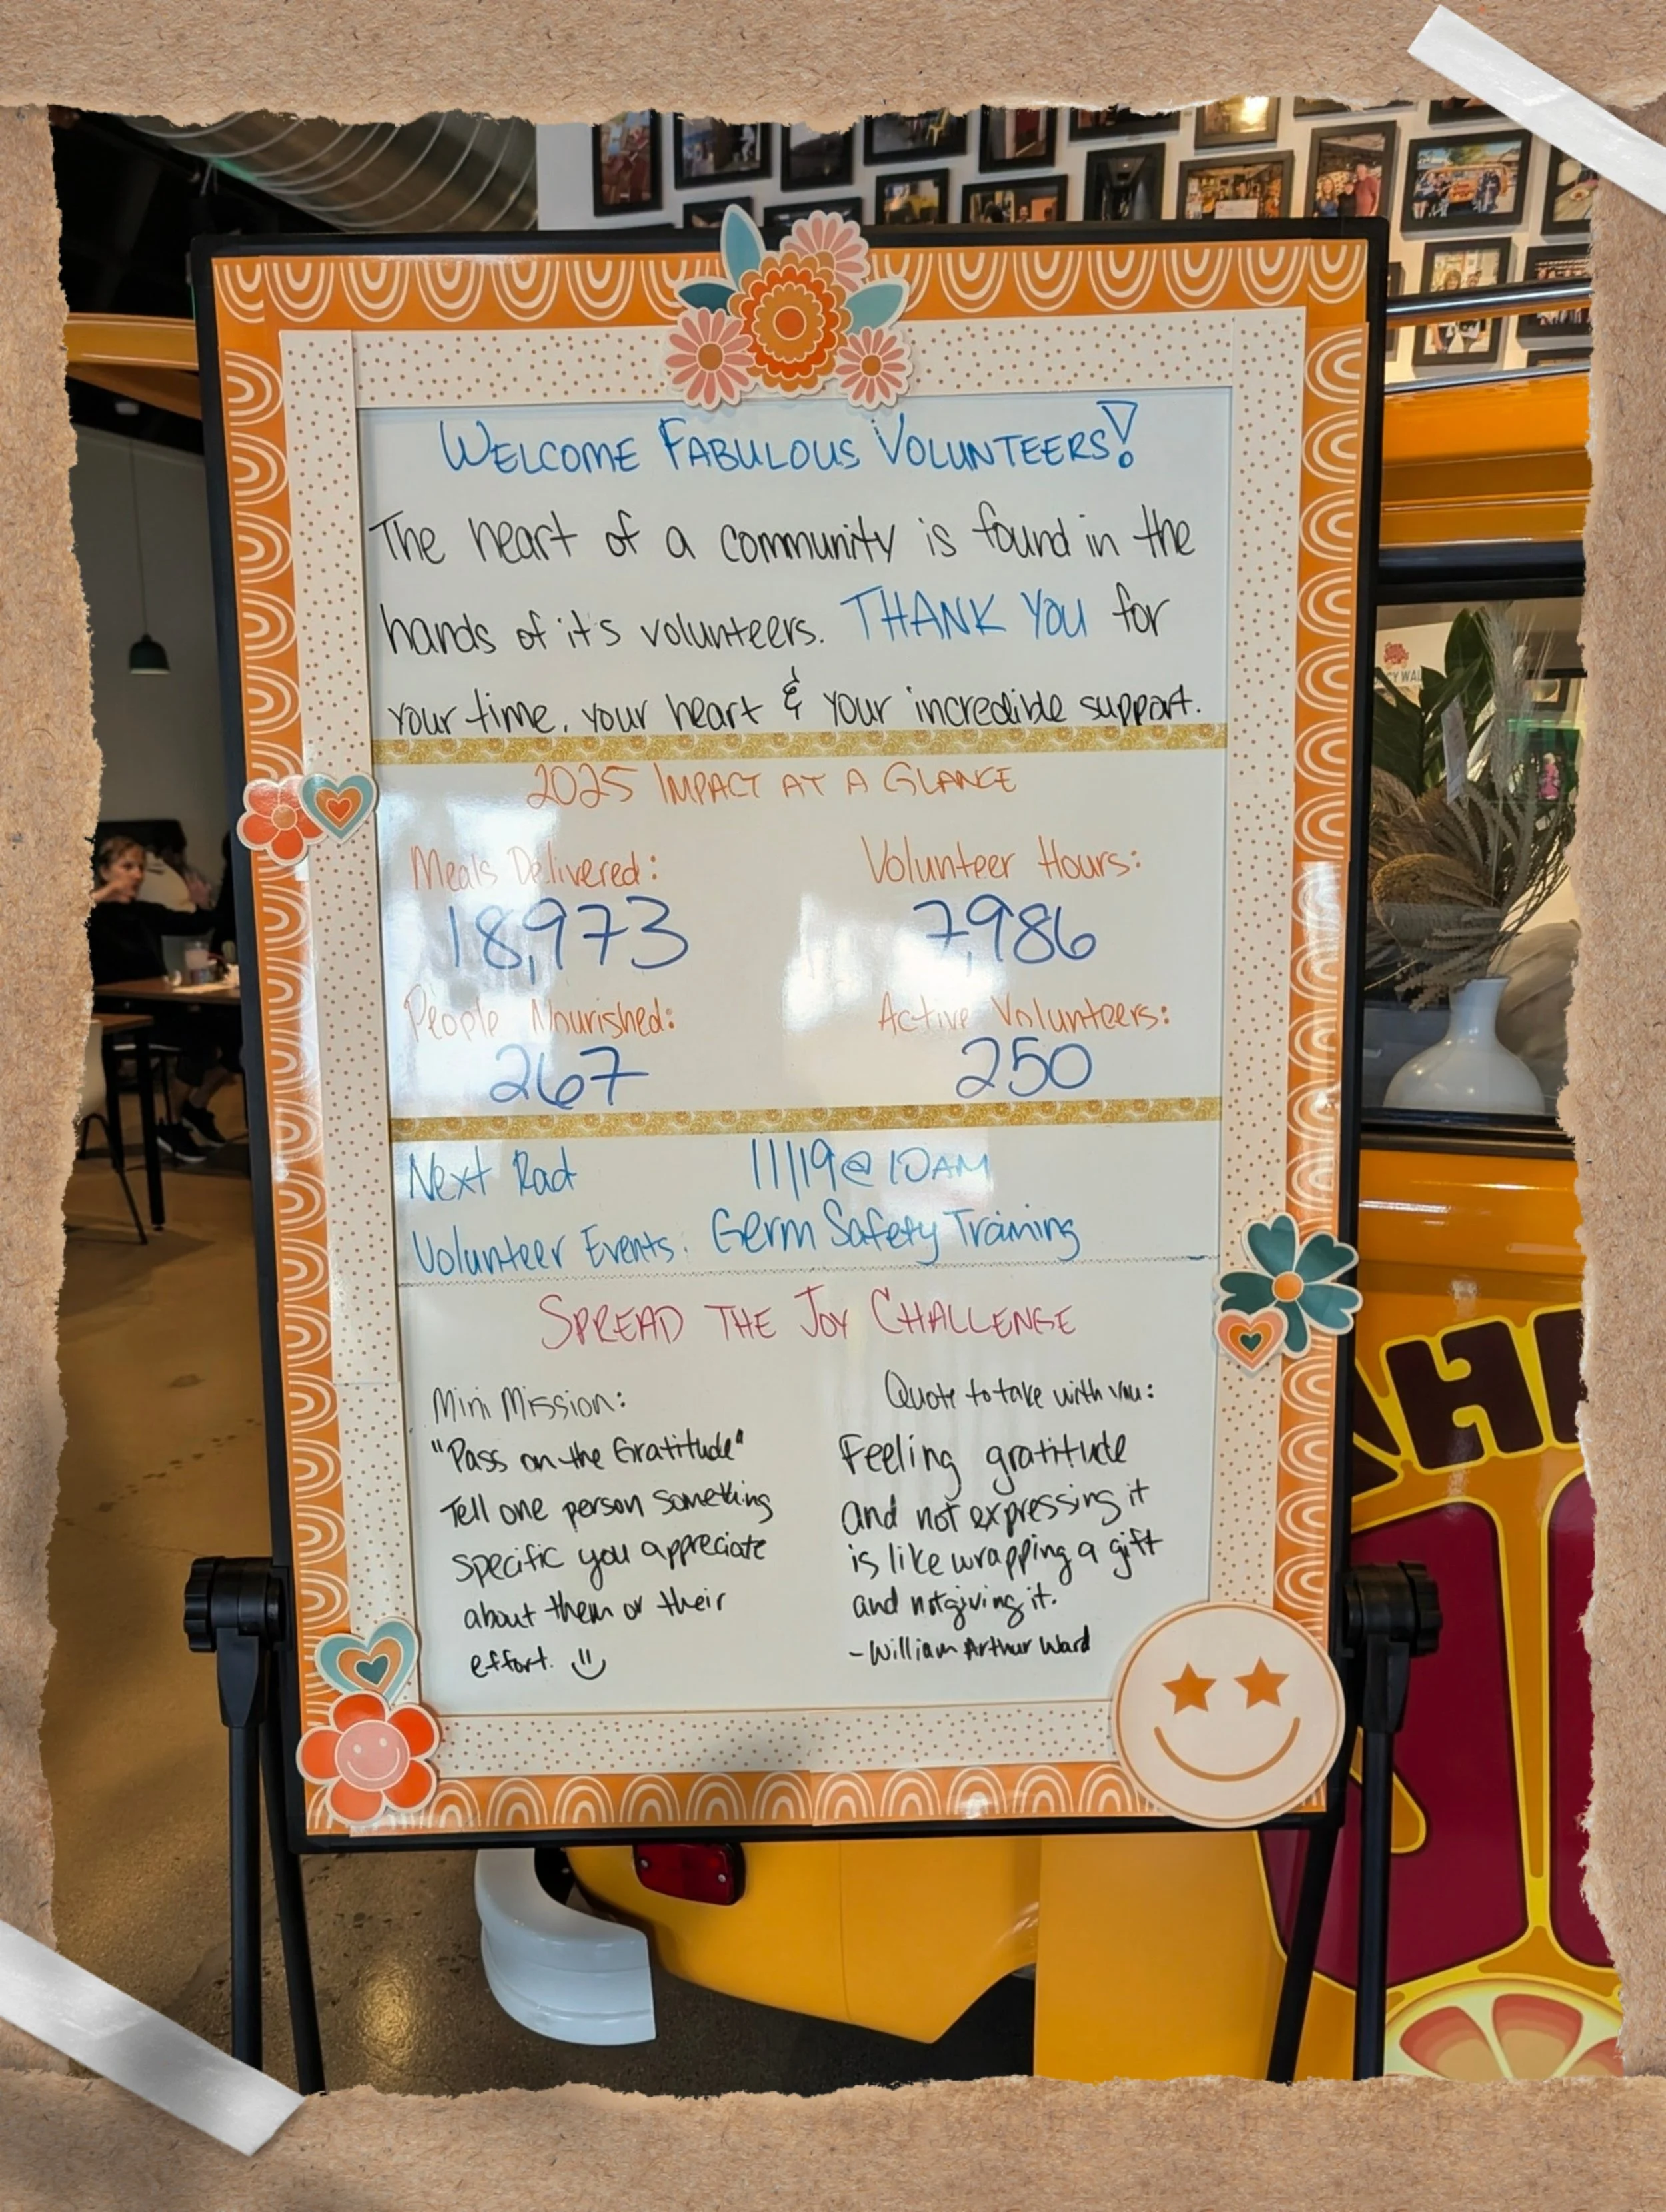 WELCOME FABULOUS VOLUNTEERS!
The heart of a community is found in the
hands of it's volunteers. THANK YOU for
your time, your heart & your incredible support.
2025 IMPACT AT A GLANCE
Meals Delivered: Volunteer Hours:
18,973 7,986
People Nourished: Active Volunteers:
267 250
Next Rad 11/19 @ 10AM
Volunteer Events: Germ Safety Training
SPREAD THE JOY CHALLENGE
Mini Mission:
"Pass on the Gratitude"
Tell one person something
specific you appreciate
about them or their
effort.
Quote to take with you:
Feeling gratitude
and not expressing it
is like wrapping a gift
and not giving it.
- William Arthur Ward